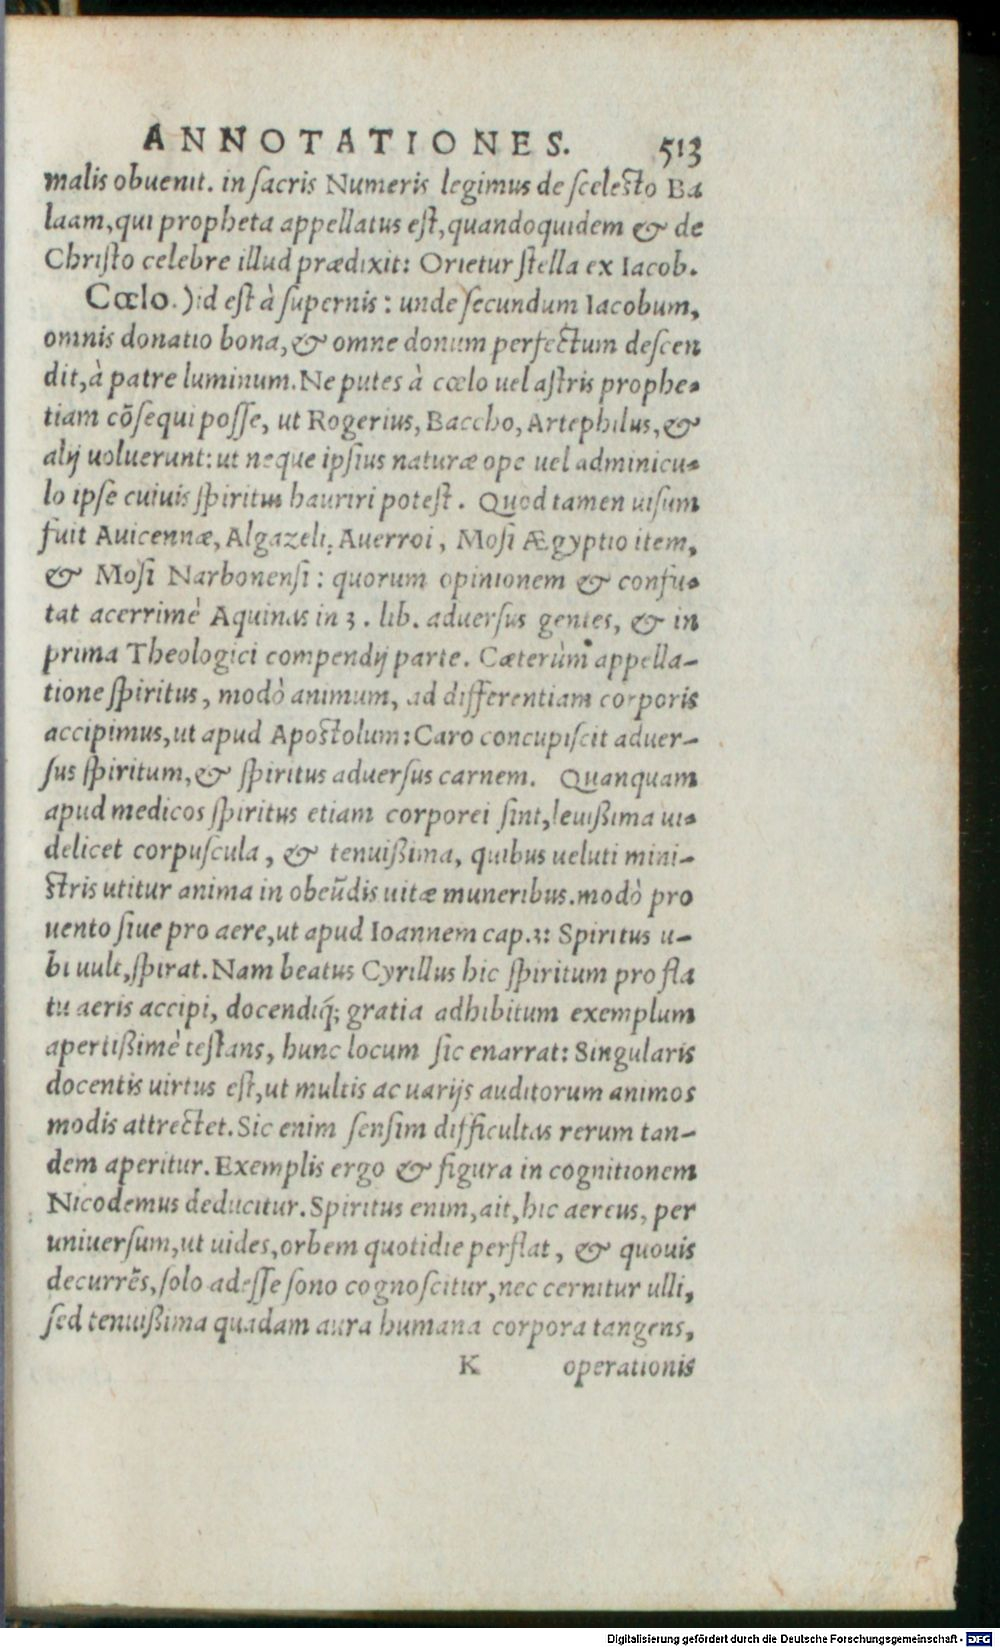 ANNOTATIONES. 513
malis obuenit. in ſacris Numeris legimus de ſceleſto Ba
laam, qui propheta appellatus eſt, quandoquidem & de
Chriſto celebre illud prædixit: Orietur ſtella ex Iacob.
Cœlo.) id eſt à ſupernis: unde ſecundum Iacobum,
omnis donatio bona, & omne donum perfectum deſcen
dit, à patre luminum. Ne putes à cœlo uel aſtris prophe-
tiam cõſequi poſſe, ut Rogerius, Baccho, Artephilus, &
alij uoluerunt: ut neque ipſius naturæ ope uel adminicu-
lo ipſe cuiuis ſpiritus hauriri poteſt. Quod tamen uiſum
fuit Auicennæ, Algazeli, Auerroi, Moſi Ægyptio item,
& Moſi Narbonenſi: quorum opinionem & confu-
tat acerrimè Aquinas in 3. lib. aduerſus gentes, & in
prima Theologici compendij parte. Cæterùm appella-
tione ſpiritus, modò animum, ad differentiam corporis
accipimus, ut apud Apoſtolum: Caro concupiſcit aduer-
ſus ſpiritum, & ſpiritus aduerſus carnem. Quanquam
apud medicos ſpiritus etiam corporei ſint, leuißima ui-
delicet corpuſcula, & tenuißima, quibus ueluti mini-
ſtris utitur anima in obeũdis uitæ muneribus. modò pro
uento ſiue pro aere, ut apud Ioannem cap. 3: Spiritus u-
bi uult, ſpirat. Nam beatus Cyrillus hic ſpiritum pro fla
tu aeris accipi, docendiq́; gratia adhibitum exemplum
apertißimè teſtans, hunc locum ſic enarrat: Singularis
docentis uirtus eſt, ut multis ac uarijs auditorum animos
modis attrectet. Sic enim ſenſim difficultas rerum tan-
dem aperitur. Exemplis ergo & figura in cognitionem
Nicodemus deducitur. Spiritus enim, ait, hic aereus, per
uniuerſum, ut uides, orbem quotidie perflat, & quouis
decurrẽs, ſolo adeſſe ſono cognoſcitur, nec cernitur ulli,
ſed tenuißima quadam aura humana corpora tangens,
K operationis
Digitalisierung gefördert durch die Deutsche Forschungsgemeinschaft - DFG